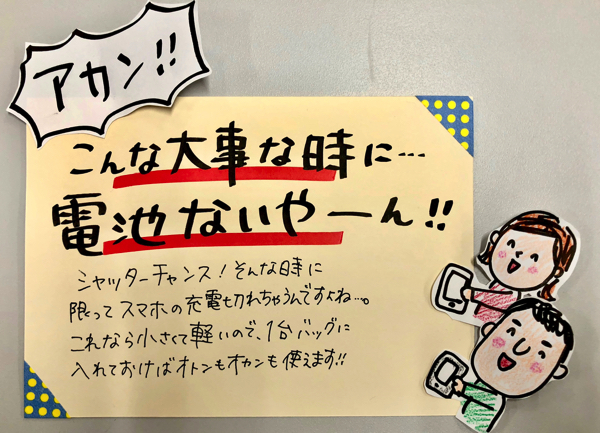 アカン!!
こんな大事な時に…
電池ないやーん!!
シャッターチャンス!そんな時に
限ってスマホの充電切れちゃうんですよね…。
これなら小さくて軽いので、1台バッグに
入れておけばオトンもオカンも使えます!!